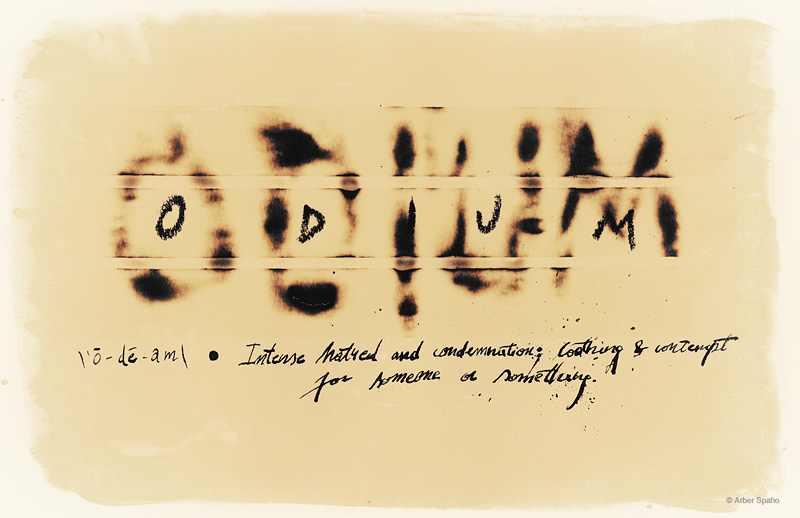 ODIUM
O D I U M
\'ō-dē-əm\ • Intense hatred and condemnation; loathing & contempt
for someone or something.
© Arber Spaho